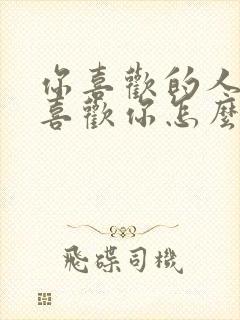 你喜歡的人
喜歡你怎麼
飛碟司機